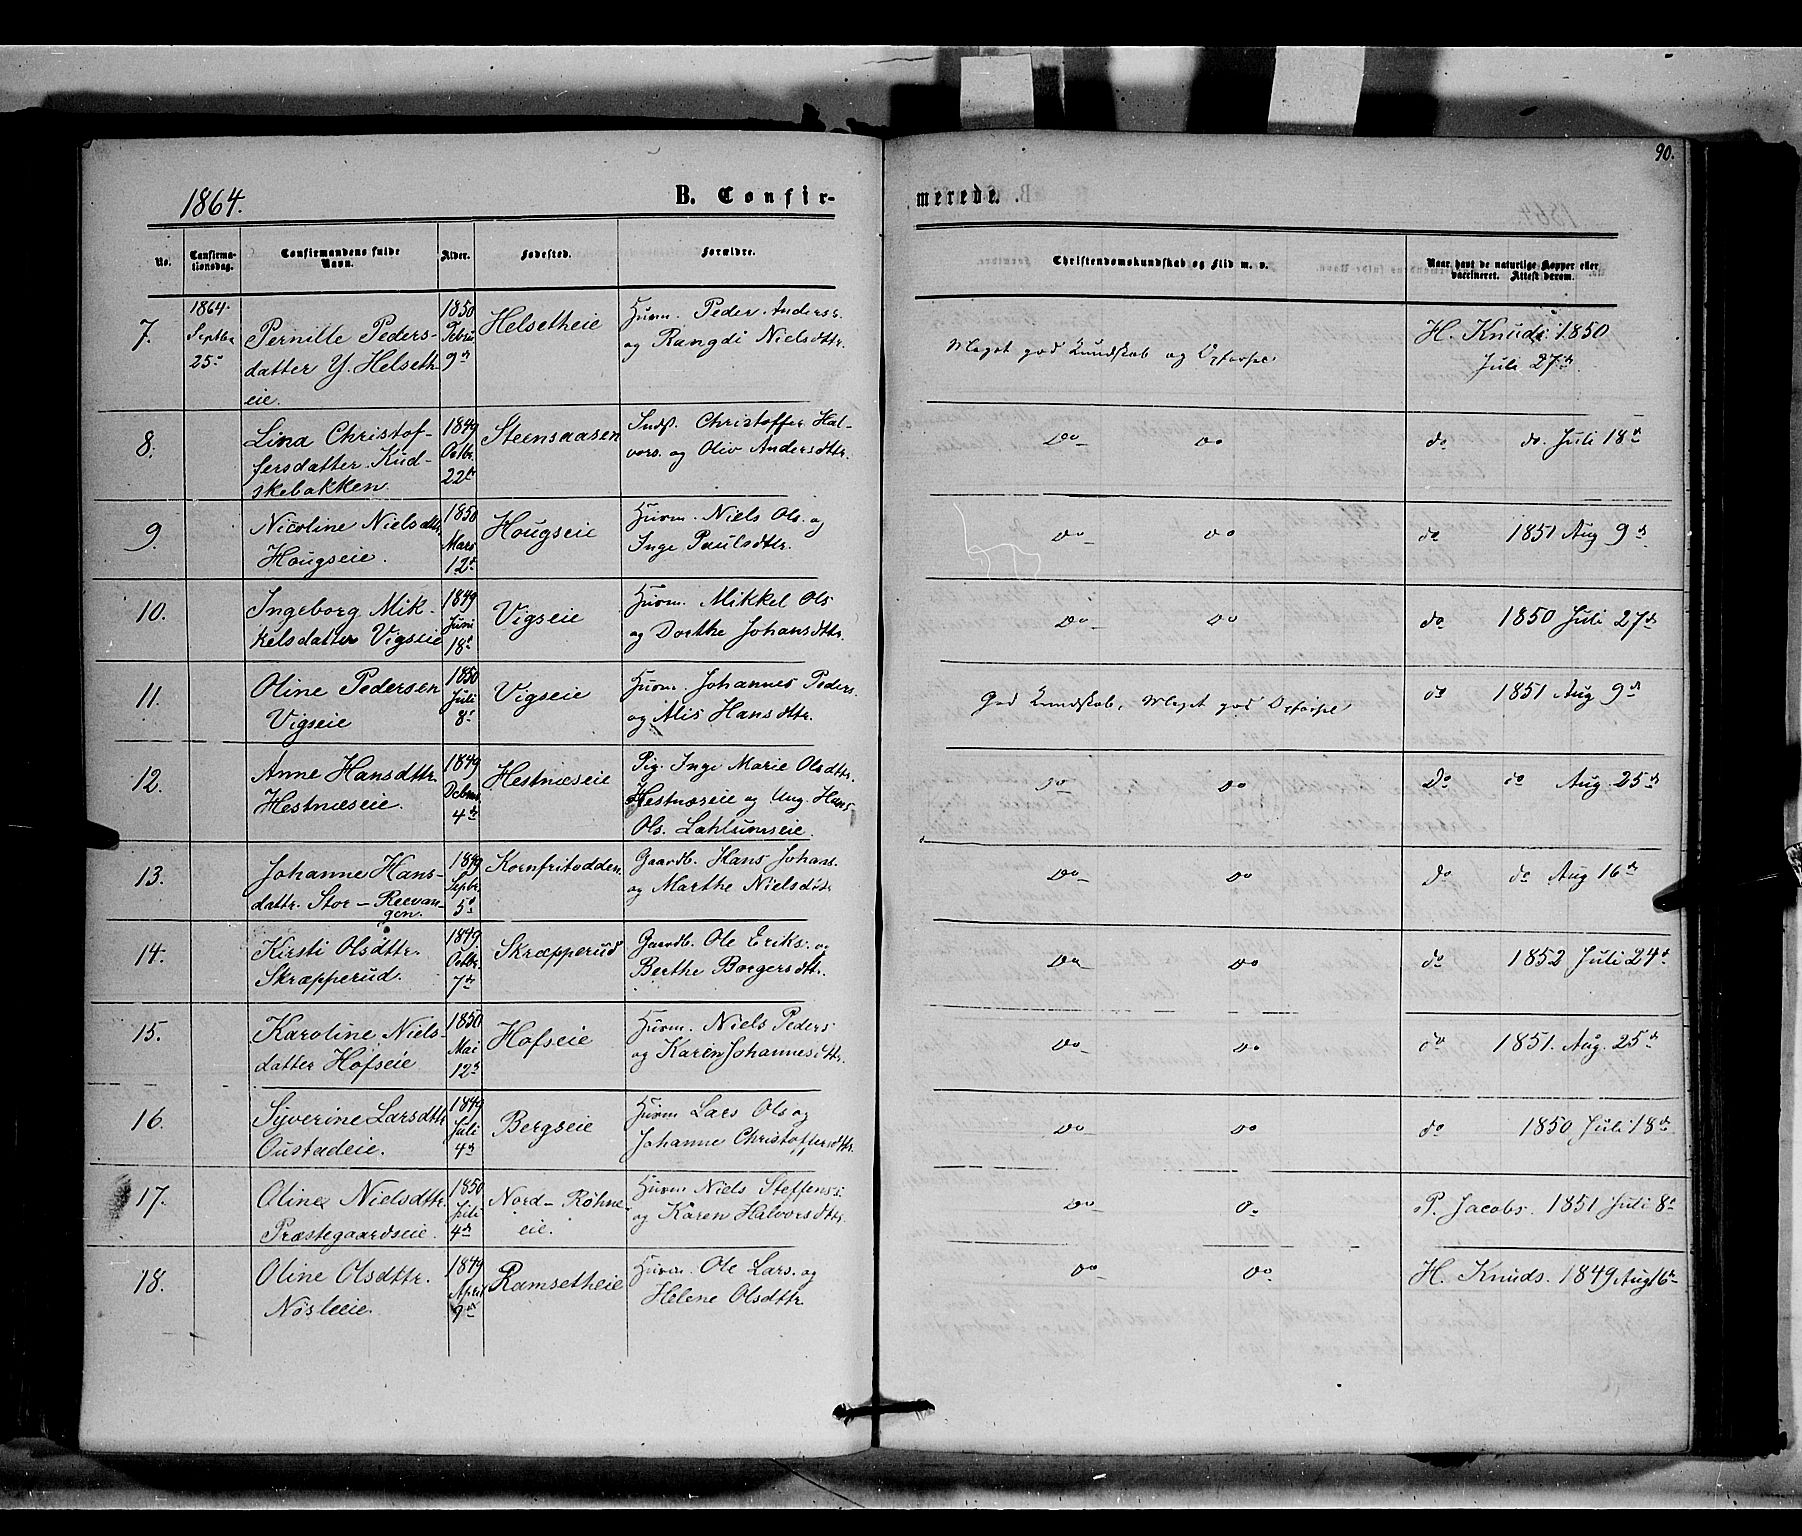 90.
1864. B. Confirmerede.
No. Confirmationsdag. Confirmandens fulde Navn. Alder. Fødested. Forældre. Christendomskundskab og Flid m. v. Naar havt de naturlige Kopper eller vaccineret. Attest derom.
7. 1864. Septbr 25d Pernille Pedersdatter Y. Helsetheie. 1850 Febru 9d Helsetheie Huvm. Peder Anders. og Rangdi Nielsdttr. Meget god Kundskab og Opførsel H. Knuds. 1850 Juli 27d
8. Lina Christoffersdatter Kudskebakken. 1849 Octbr. 22d Steensaasen Indst. Christoffer Halvors. og Oliv Andersdttr. Do Do do do. Juli 18d
9. Nicoline Nielsdttr. Hougseie. 1850 Mars 12d Hougseie Huvm. Niels Ols. og Inge Paulsdttr. Do Do do 1851 Aug 9d
10. Ingeborg Mikkelsdatter Vigseie 1849 Juni 18d Vigseie Huvm. Mikkel Ols og Dorthe Johansdttr. Do Do do 1850 Juli 27d
11. Oline Pedersen Vigseie 1850 Juli 8d Vigseie Huvm. Johannes Peders. og Alis Hansdttr. God Kundskab, Meget god Opførsel do 1851 Aug 9d
12. Anne Hansdttr. Hestnæseie. 1849 Decbr. 4d Hestnæseie Pig. Inge Marie Olsdttr. Hestnæseie og Ung. Hans Ols. Lahlumseie. Do Do Do do Aug. 25d
13. Johanne Hansdattr. Stor-Reevangen. 1849 Septbr. 5d Kornfritodden Gaardb. Hans Johans. og Marthe Nielsdttr Do Do Do do Aug 16d
14. Kirsti Olsdttr. Skræpperud. 1849. Octbr. 7d Skræpperud Gaardb. Ole Eriks. og Berthe Borgersdttr. Do Do do 1852 Juli 24d
15. Karoline Nielsdatter Hofseie 1850 Mai 12d Hofseie Huvm. Niels Peders og Karen Johannesdttr. Do Do do 1851. Aug. 25d
16. Syverine Larsdttr Oustadeie. 1849 Juli 4d Bergseie Huvm Lars Ols og Johanne Christoffersdttr. Do Do do 1850 Juli 18d
17. Oline Nielsdttr. Præstegaardseie. 1850 Juli 4d Nord-Røhneeie. Huvm Niels Steffens. og Karen Halvorsdttr. Do Do P. Jacobs. 1851 Juli 8d
18. Oline Olsdttr. Nøsleeie. 1849 April 9d Ramsetheie Huvm. Ole Lars. og Helene Olsdttr. Do Do H. Knuds. 1849 Aug 16d